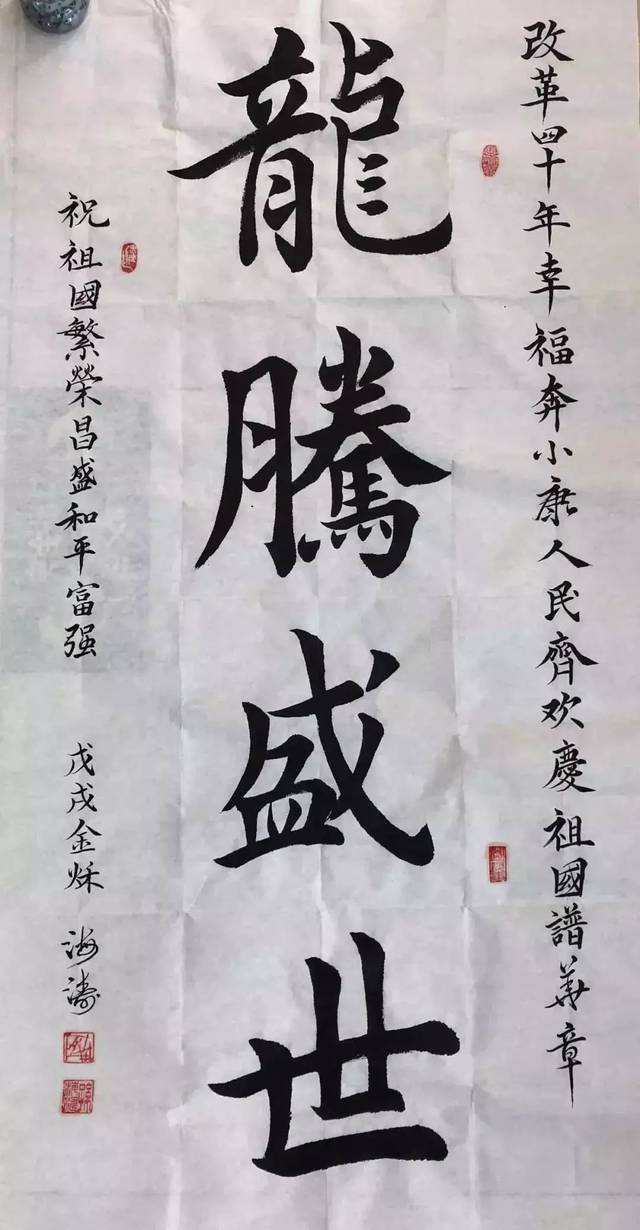 改革四十年幸福奔小康人民齊欢慶祖國譜華章
龍騰盛世
祝祖國繁榮昌盛和平富强
戊戌金秌 海濤